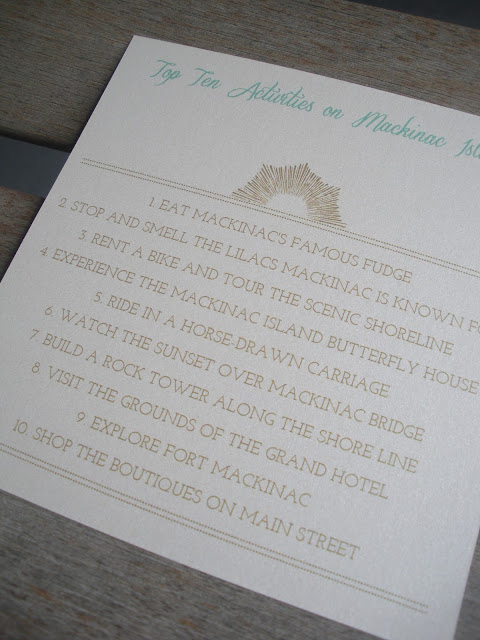 Top Ten Activities on Mackinac Isl
1. EAT MACKINAC'S FAMOUS FUDGE
2. STOP AND SMELL THE LILACS MACKINAC IS KNOWN FO
3. RENT A BIKE AND TOUR THE SCENIC SHORELINE
4. EXPERIENCE THE MACKINAC ISLAND BUTTERFLY HOUSE
5. RIDE IN A HORSE-DRAWN CARRIAGE
6. WATCH THE SUNSET OVER MACKINAC BRIDGE
7. BUILD A ROCK TOWER ALONG THE SHORE LINE
8. VISIT THE GROUNDS OF THE GRAND HOTEL
9. EXPLORE FORT MACKINAC
10. SHOP THE BOUTIQUES ON MAIN STREET